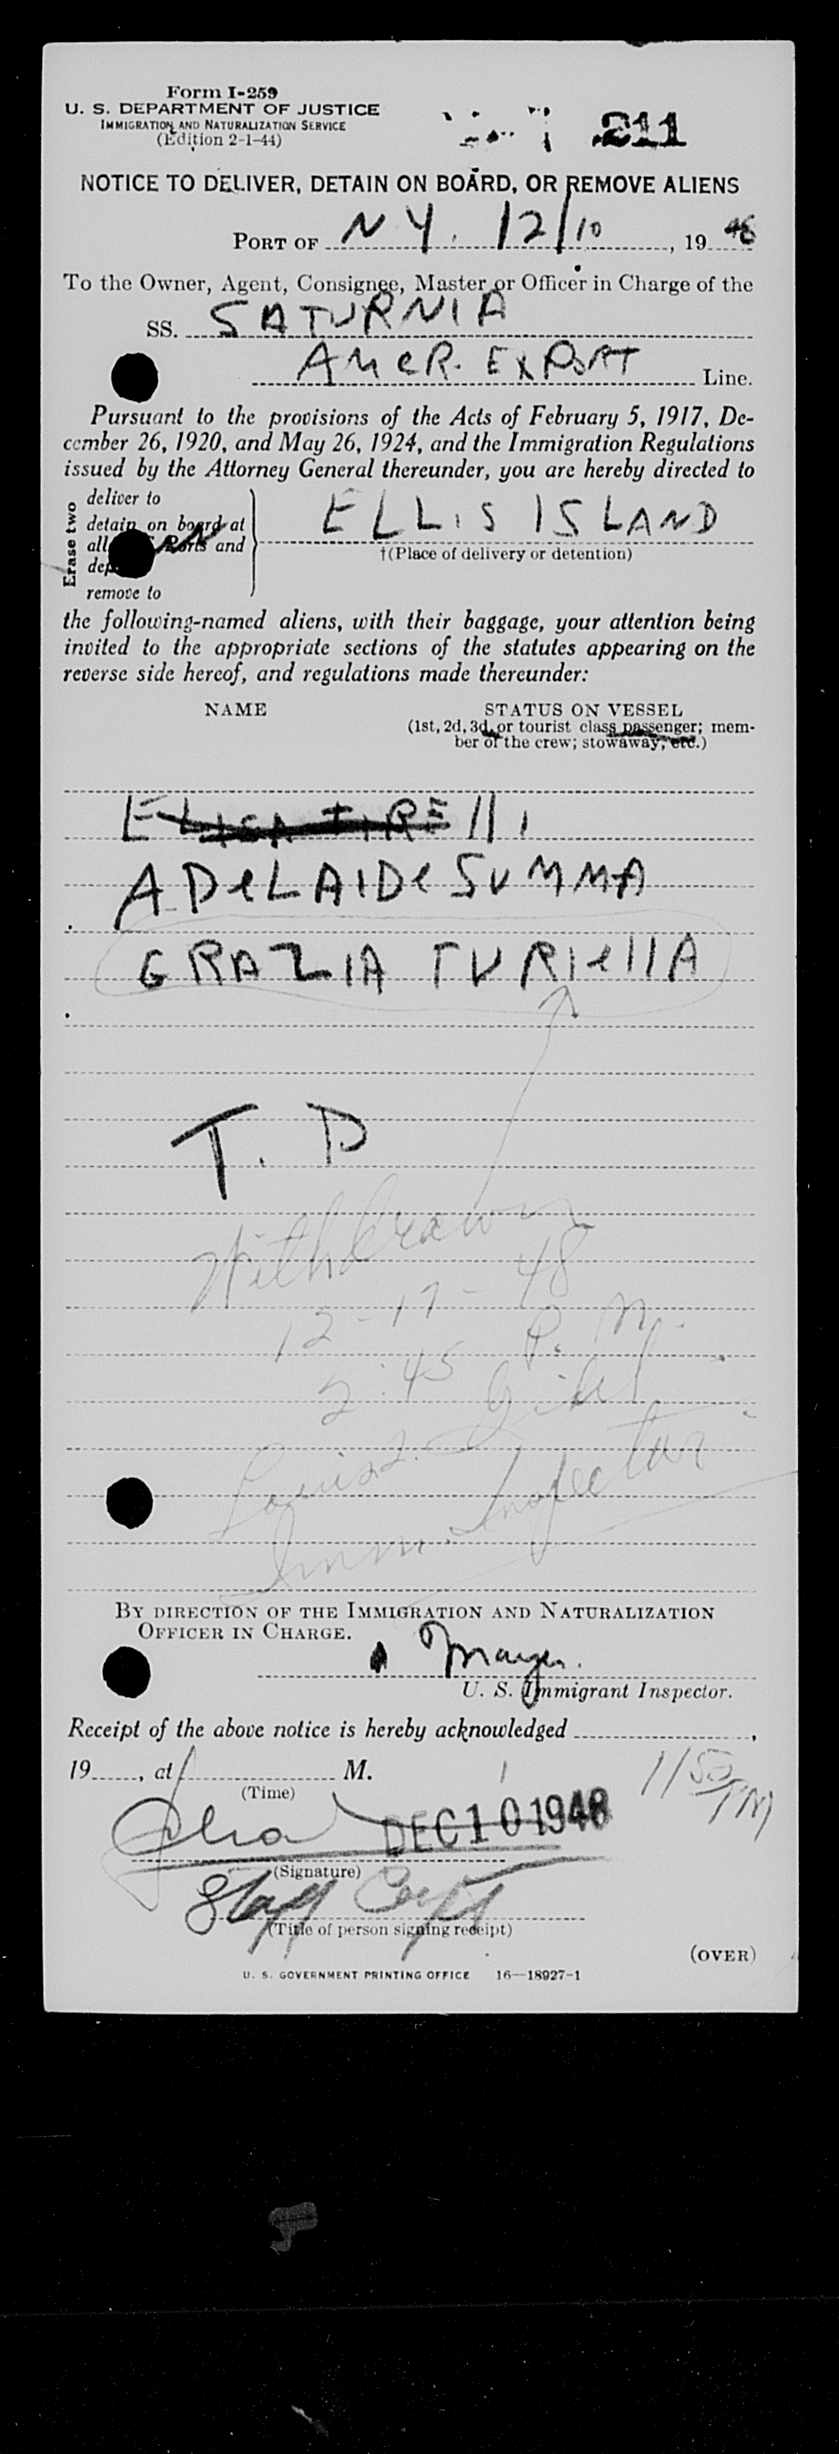 Form I-259
U. S. DEPARTMENT OF JUSTICE
IMMIGRATION AND NATURALIZATION SERVICE
(Edition 2-1-44)
211
NOTICE TO DELIVER, DETAIN ON BOARD, OR REMOVE ALIENS
PORT OF N Y. 12/10, 1948
To the Owner, Agent, Consignee, Master or Officer in Charge of the
SS. SATURNIA
AMER. EXPORT Line.
Pursuant to the provisions of the Acts of February 5, 1917, De-
cember 26, 1920, and May 26, 1924, and the Immigration Regulations
issued by the Attorney General thereunder, you are hereby directed to
Erase two
deliver to
detain on board at
all Ports and
remove to
ELLIS ISLAND
†(Place of delivery or detention)
the following-named aliens, with their baggage, your attention being
invited to the appropriate sections of the statutes appearing on the
reverse side hereof, and regulations made thereunder:
NAME
STATUS ON VESSEL
(1st, 2d, 3d, or tourist class passenger; mem-
ber of the crew; stowaway, etc.)
ELISA TIRELLI
ADELAIDE SUMMA
GRAZIA TURIELLA
T. D
Withdrawn
12-17-48
2:45 P. M.
Louis
Imm. Inspector
BY DIRECTION OF THE IMMIGRATION AND NATURALIZATION
OFFICER IN CHARGE.
U. S. Immigrant Inspector.
Receipt of the above notice is hereby acknowledged ,
19 , at M.
(Time)
1150 PM
DEC 10 1948
(Signature)
Staff Capt
(Title of person signing receipt)
(OVER)
U. S. GOVERNMENT PRINTING OFFICE 16—18927-1